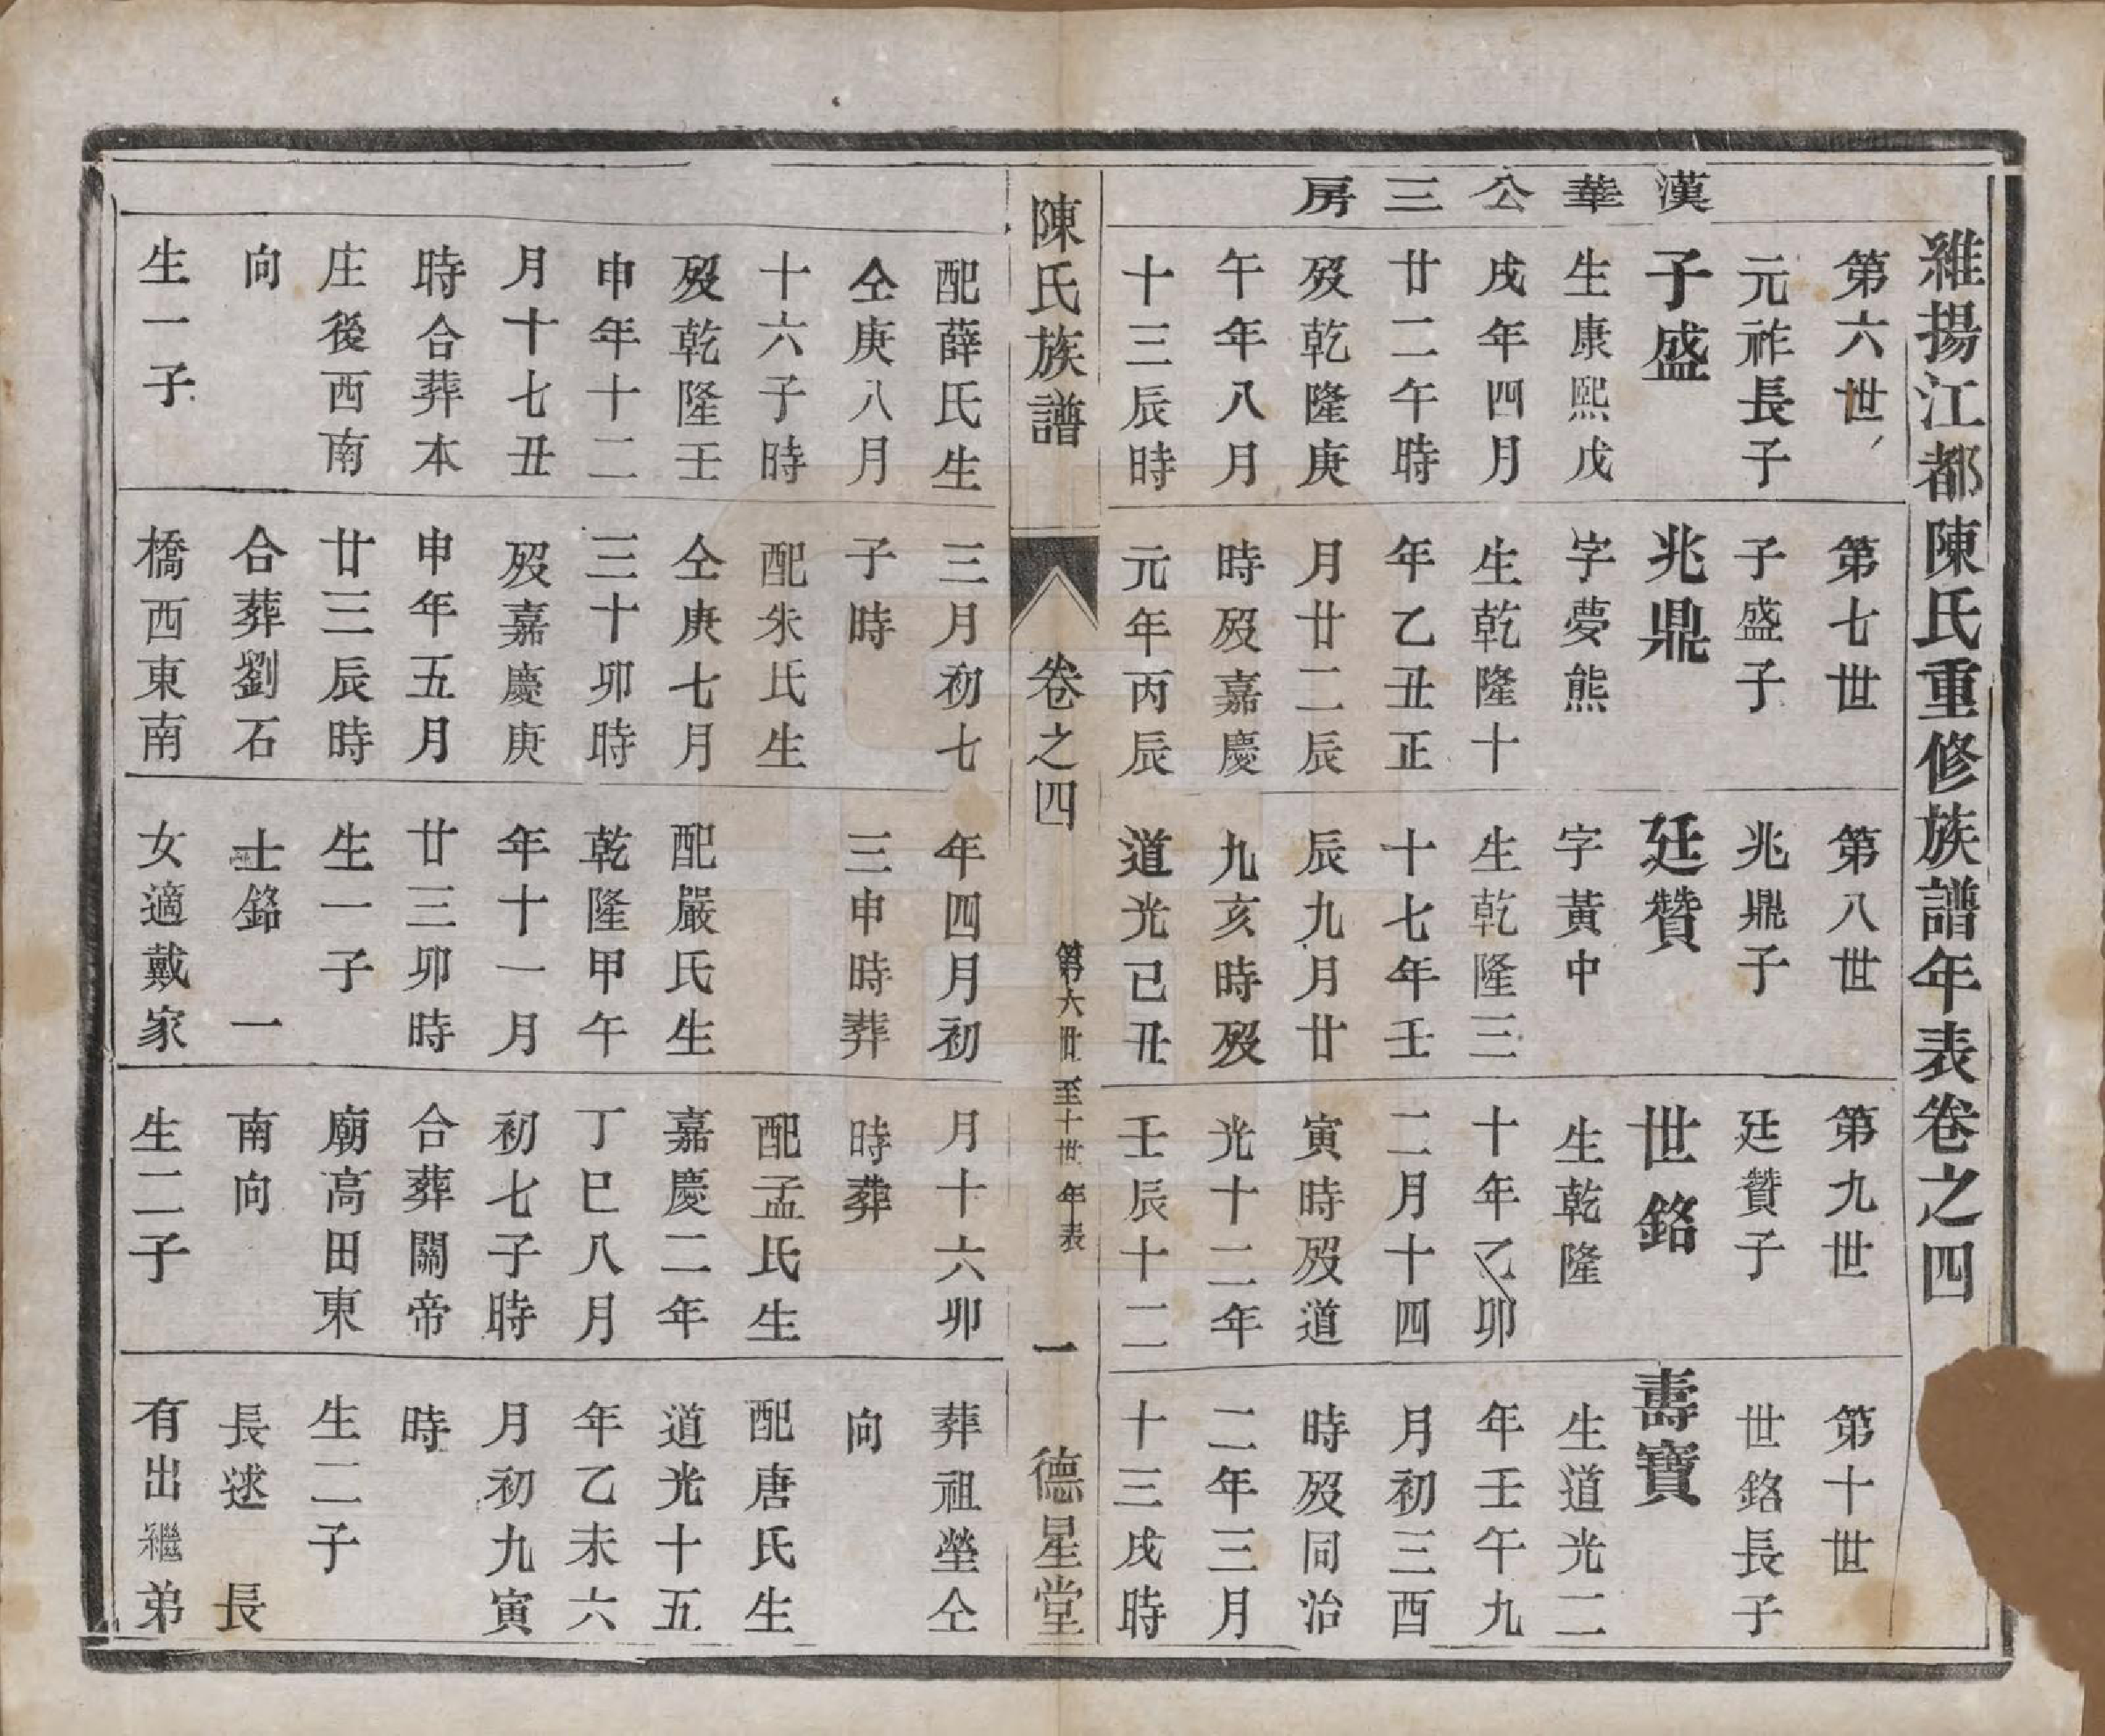 維揚江都陳氏重修族譜年表卷之四
漢華公三房
第六世
元祚長子
子盛
生康熙戊
戌年四月
廿二午時
歿乾隆庚
午年八月
十三辰時
第七世
子盛子
兆鼎
字夢熊
生乾隆十
年乙丑正
月廿二辰
時歿嘉慶
元年丙辰
第八世
兆鼎子
廷贊
字黃中
生乾隆三
十七年壬
辰九月廿
九亥時歿
道光己丑
第九世
廷贊子
世銘
生乾隆
十年乙卯
二月十四
寅時歿道
光十二年
壬辰十二
第十世
世銘長子
壽寶
生道光二
年壬午九
月初三酉
時歿同治
二年三月
十三戌時
陳氏族譜
卷之四
第六世至十世年表
一
德星堂
配薛氏生
仝庚八月
十六子時
歿乾隆壬
申年十二
月十七丑
時合葬本
庄後西南
向
生一子
三月初七
子時
配朱氏生
仝庚七月
三十卯時
歿嘉慶庚
申年五月
廿三辰時
合葬劉石
橋西東南
年四月初
三申時葬
配嚴氏生
乾隆甲午
年十一月
廿三卯時
生一子
士銘　一
女適戴家
月十六卯
時葬
配孟氏生
嘉慶二年
丁巳八月
初七子時
合葬關帝
廟高田東
南向
生二子
葬祖塋仝
向
配唐氏生
道光十五
年乙未六
月初九寅
時
生二子
長逑　長
有出繼弟